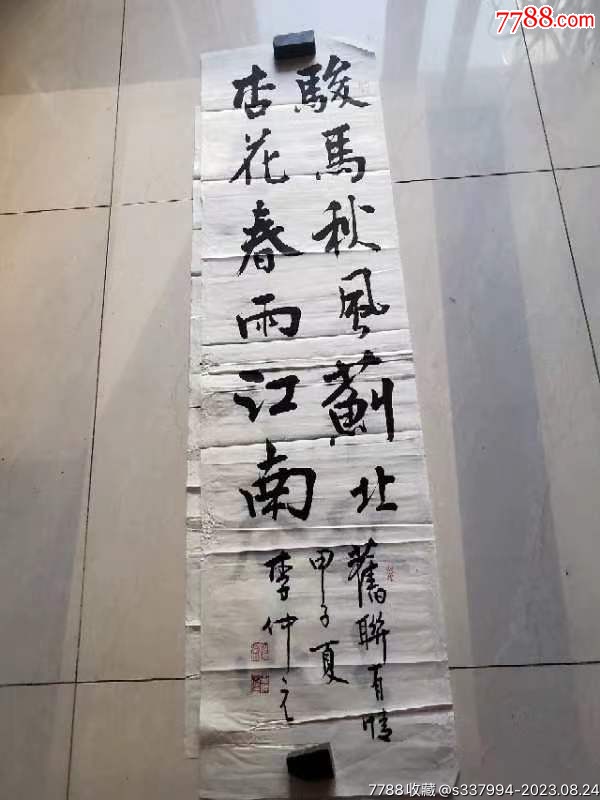 7788.com
駿馬秋風薊北
杏花春雨江南
舊聯有情
甲子夏
李仲元
7788收藏@s337994-2023.08.24